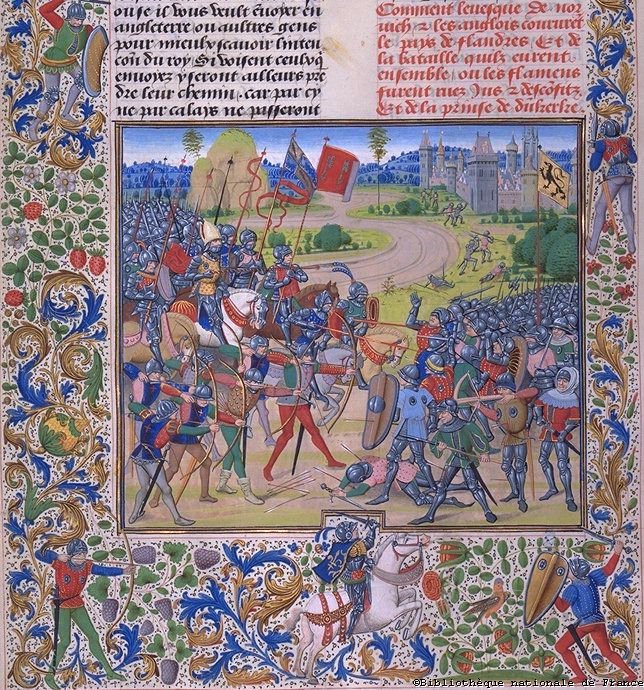 ou se il vous veult envoyer en
angleterre ou aultres gens
pour mieulx scavoir linten
cōn du roy Si voisent ceulx q̄
envoyez y seront ailleurs prē
dre leur chemin, car par cy
ne par calais ne passeront
Comment levesque de nor
wich & les anglois coururēt
le pays de flandres Et de
la bataille quilz eurent
ensemble, ou les flamens
furent ruez Jus & descōfitz
Et de la prinse de
©Bibliothèque nationale de France